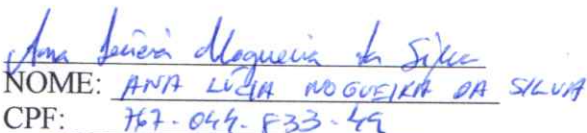 Ana Lúcia Nogueira da Silva
NOME: ANA LÚCIA NOGUEIRA DA SILVA
CPF: 767-044-833-49